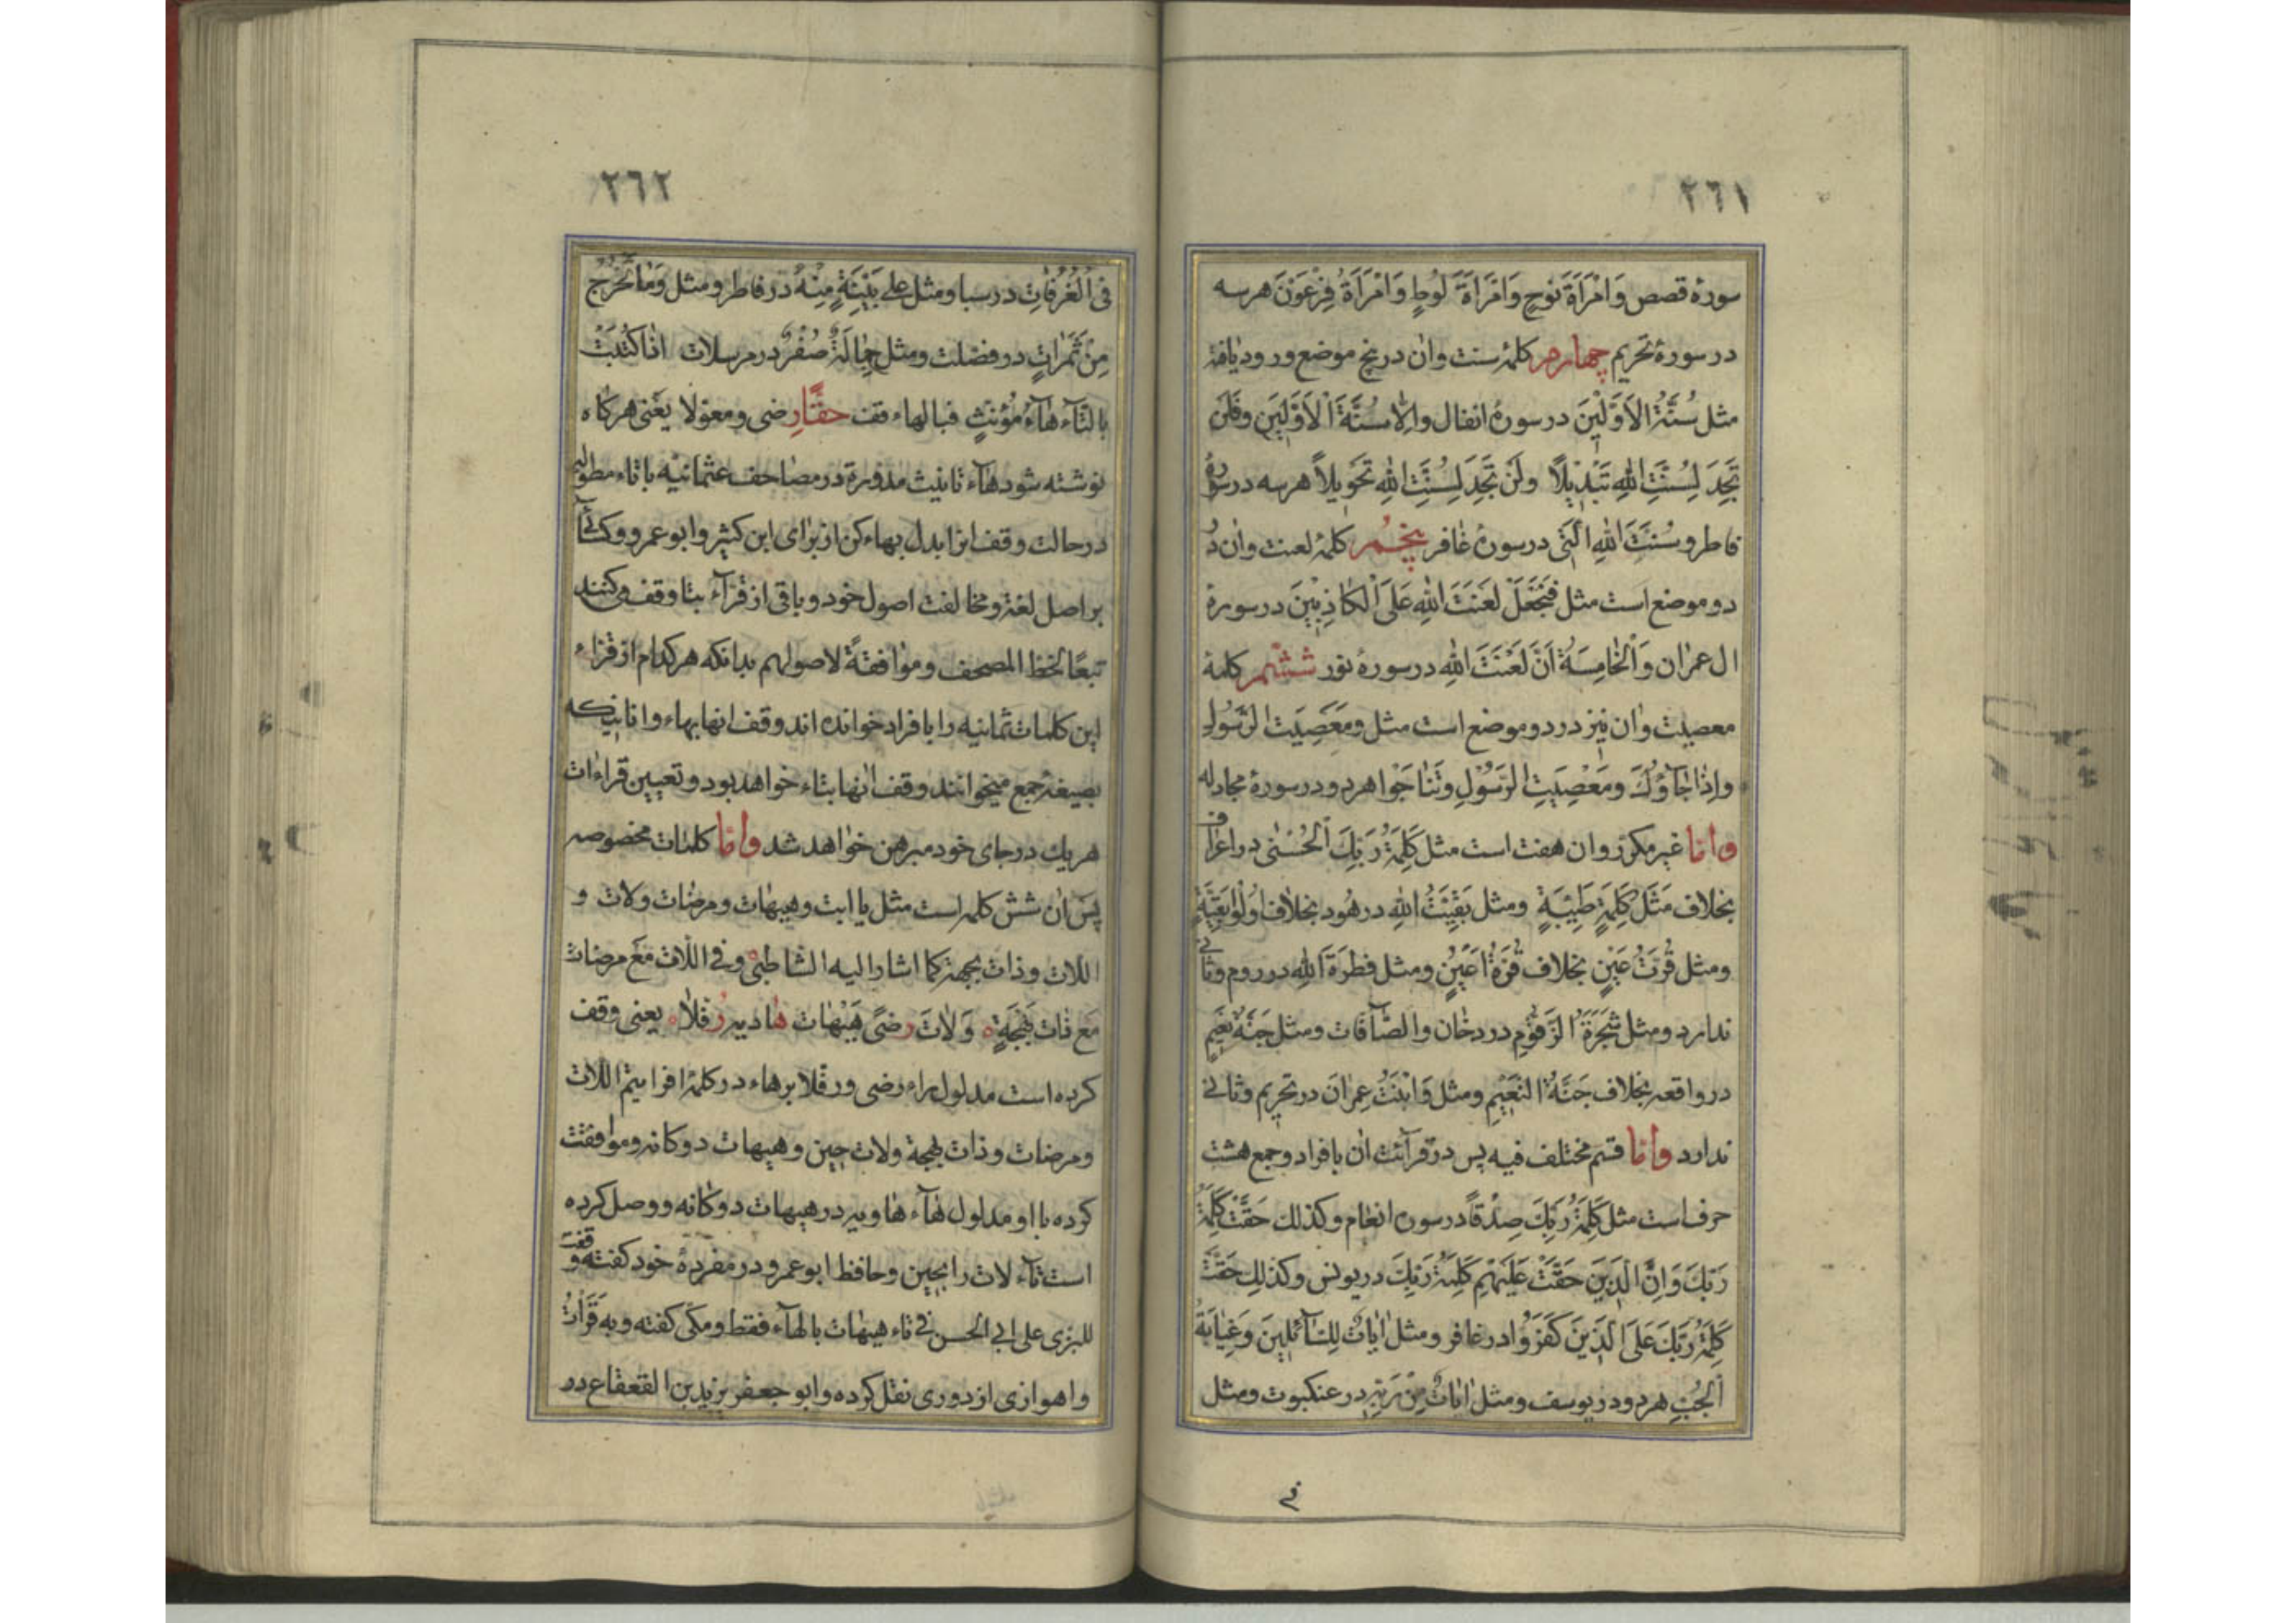 ٢٦١
سورهٔ قصص وَامْرَأَةَ نوحٍ وَامْرَأَةَ لُوطٍ وَامْرَأَةُ فِرْعَوْنَ هرسه
در سورهٔ تحریم چهارم کلمهٔ سنت وان در پنج موضع ورود یافته
مثل سُنَّةُ الاَوَّلِیْنَ در سورهٔ انفال والّا سُنَّةَ الْاَوَّلِیَن وفَلَن
تَجِدَ لِسُنَّتِ اللهِ تَبْدِیلًا ولَنْ تَجِدَ لِسُنَّتِ اللهِ تَحْوِیلًا هرسه در سورهٔ
فاطر وسُنَّتَ اللهِ الَّتی در سورهٔ غافر پنجُم کلمهٔ لعنت وان دُ
دو موضع است مثل فَنَجْعَلْ لَعنَتَ اللهِ عَلَی الْکاذِبیْنَ در سورهٔ
ال عمران وَالْخامِسَةُ اَنَّ لَعْنَتَ اللهِ در سورهٔ نور ششم کلمهٔ
معصیت وان نیز در دو موضع است مثل ومَعْصِیَت الرَّسُولِ
واِذا جَآؤُکَ ومَعْصِیَتِ الرَّسُوْلِ وتَناجَوْا هردو در سورهٔ مجادله
وامّا غیر مکرّر وان هفت است مثل کَلِمَةُ رَبِّکَ الْحُسْنٰی در اعراف
بخلاف مَثَل کَلِمَةٍ طَیِّبَةٍ ومثل بَقِیَّتُ اللهِ در هُود بخلاف اُولُوا بَقِیَّةٍ
ومثل قُرَّتُ عَیْنٍ بخلاف قُرَّةُ اَعْیُنٍ ومثل فطرَةَ اللهِ در روم وثانی
ندارد ومثل شَجَرَةَ الزَّقُّوْمِ در دخان والصّآفات ومثل جَنَّةُ نَعیمٍ
در واقعه بخلاف جَنَّةُ النَّعیْمِ ومثل وَابْنَتُ عِمْرانَ در تحریم وثانی
ندارد وامّا قسم مختلف فیه پس در قرآئت ان بافراد وجمع هشت
حرف است مثل کَلِمَةُ رَبِّکَ صِدْقًا در سوره انعام وکذلک حَقَّتْ کَلِمَةُ
رَبِّکَ وَاِنَّ الَّذِیْنَ حَقَّتْ عَلَیْهِمْ کَلِمَةُ رَبِّکَ در یونس وکذلِکَ حَقَّتْ
کَلِمَةُ رَبِّکَ عَلَی الَّذِیْنَ کَفَرُوْا در غافر ومثل اٰیاتٌ لِلسّآئِلِیْنَ وَغِیٰابَةُ
الْجُبِّ هردو در یوسف ومثل اٰیاتٌ مِنْ رَبِّهِ در عنکبوت ومثل
فی
٢٦٢
فی الْغُرُفاتِ در سبا ومثل علی بَیِّنَةٍ مِنْهُ در فاطر ومثل وَمٰا تَخْرُجُ
مِنْ ثَمَراتٍ در فصّلت ومثل جِمالَةٌ صُفْرٌ در مرسلات اذا کُتِبَتْ
بالتّآء هٰآءُ مُؤنّثٍ فبالهاء قف حقًّا رِضی ومعوّلا یعنی هرکاه
نوشته شود هآء تانیث مدوّرة در مصاحف عثمانیّه باتاء مطوّله
در حالت وقف انرا بدل بهاء کن از برای ابن کثیر وابو عمرو وکسآئی
بر اصل لغة ومخالفت اصول خود وباقی از قرّآء بتا وقف میکنند
تبعًا لخط المصحف وموافقةً لاصولهم بدانکه هرکدام از قرّاء
این کلمات ثمانیه را بافراد خوانده اند وقف انها بهاء وانانیکه
بصیغهٔ جمع میخوانند وقف انها بتاء خواهد بود وتعیین قراءات
هریک در جای خود مبرهن خواهد شد وامّا کلمات مخصوصه
پس ان شش کلمه است مثل یا ابت وهیهات ومرضات ولات و
اللات وذات بهجة کما اشار الیه الشاطبی وفی اللّات مَعَ مرضات
مَع ذات بَهْجَةٍ وَلٰاتَ رضًی هَیْهات هٰادیه رُفّلاً یعنی وقف
کرده است مدلول راء رضی ورفّلا برهاء در کلمهٔ افرایتم اللات
ومرضات وذات بهجة ولات حین وهیهات دوکانه وموافقت
کرده با او مدلول هٰآء هادیه در هیهات دوکانه ووصل کرده
است تآء لات را بحین وحافظ ابو عمرو در مفردهٔ خود کفته وقفت
للبزی علی ابی الحسن فی تاء هیهات بالهآء فقط ومکّی کفته وبه قَرَأتُ
واهوازی از دوری نقل کرده وابو جعفر یزید بن القعقاع در